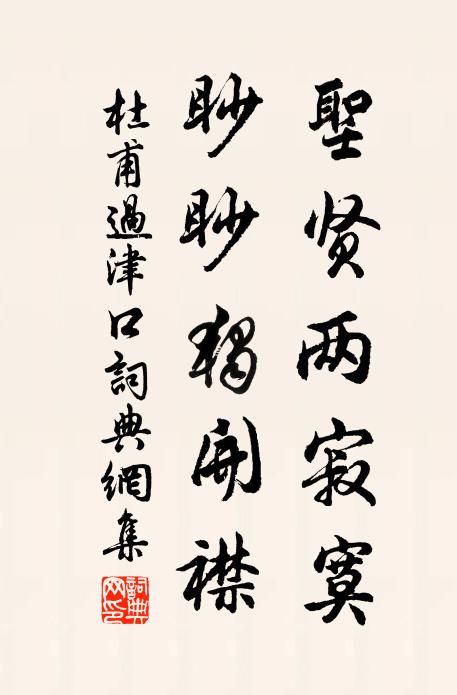 聖贤两寂寞
眇眇獨開襟
杜甫過津口詞典網集
詞典網印